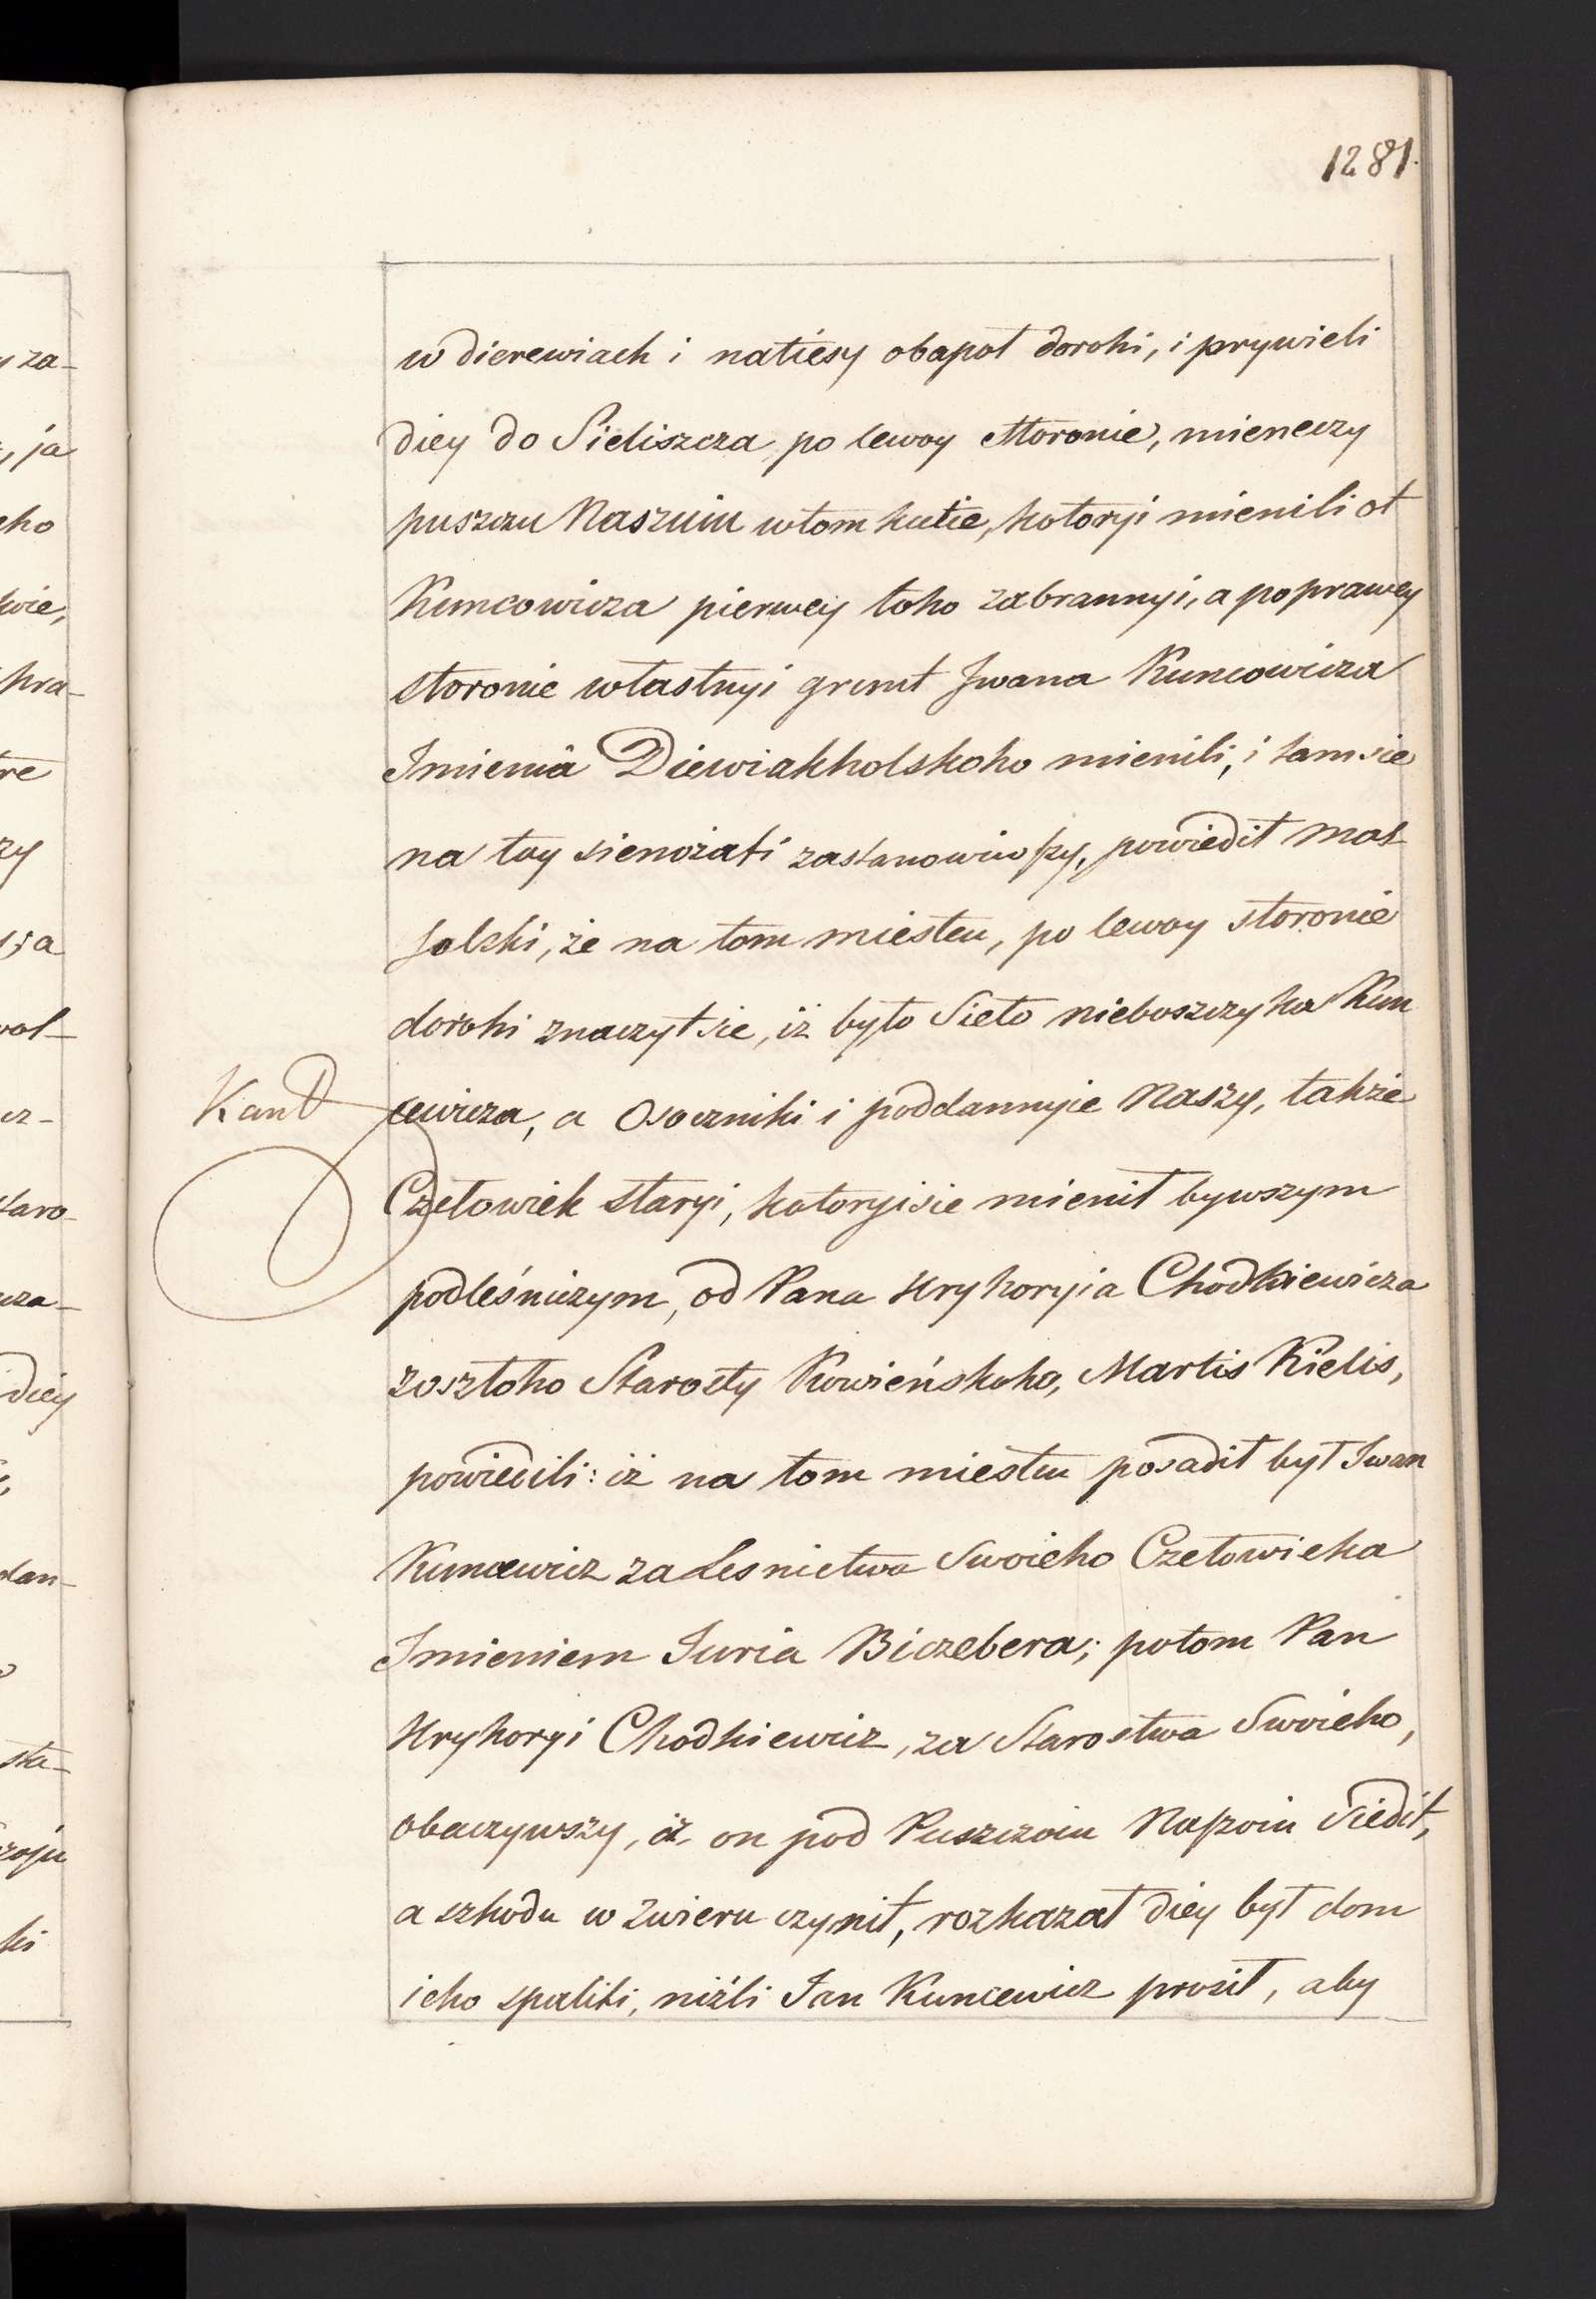 1281.
w dierewiach i natiesy obapoł dorohi, i prywieli
diey do Sieliszcza po lewoy storonie, mieneczy
puszczu Naszuiu w tom kutie, kotoryi mienili ot
Kuncowicza pierwey toho zabrannyi, a po prawey
storonie własłnyi grunt Jwana Kuncowicza
Imienia Diewiakholskoho mienili, i tam sie
na toy sienożati zastanowiwszy, powiedił Mał
solski, że na tom miestcu, po lewoy storonie
dorohi znaczyt sie, iż było Sieło nieboszczyka Kun
cewicza, a Osoczniki i poddannyie Naszy, także
Człowiek staryi, kotoryi sie mienił bywszym
podleśniczym, od Pana Hryhoryia Chodkiewicza
zoszłoho Starosty Kowieńskoho, Martis Kielis,
powiedili: iż na tom miestcu posadił był Iwan
Kuncewicz za Lesnictwa Swoieho Czełowieka
Imieniem Iuria Biczebera; potom Pan
Hryhoryi Chodkiewicz, za Starostwa Swoieho,
obaczywszy, iż on pod Puszczoiu Naszoiu Siedit,
a szkodu w Zwieru czynił, rozkazał diey był dom
ieho spaliti, niżli Ian Kuncewicz prosił, aby